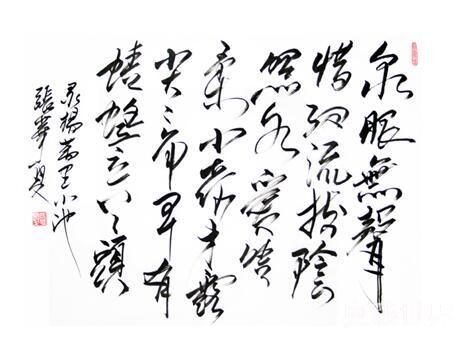 泉眼無聲
惜細流樹陰
照水愛晴
柔小荷才露
尖〻角早有
蜻蜓立上頭
录楊萬里小池
張